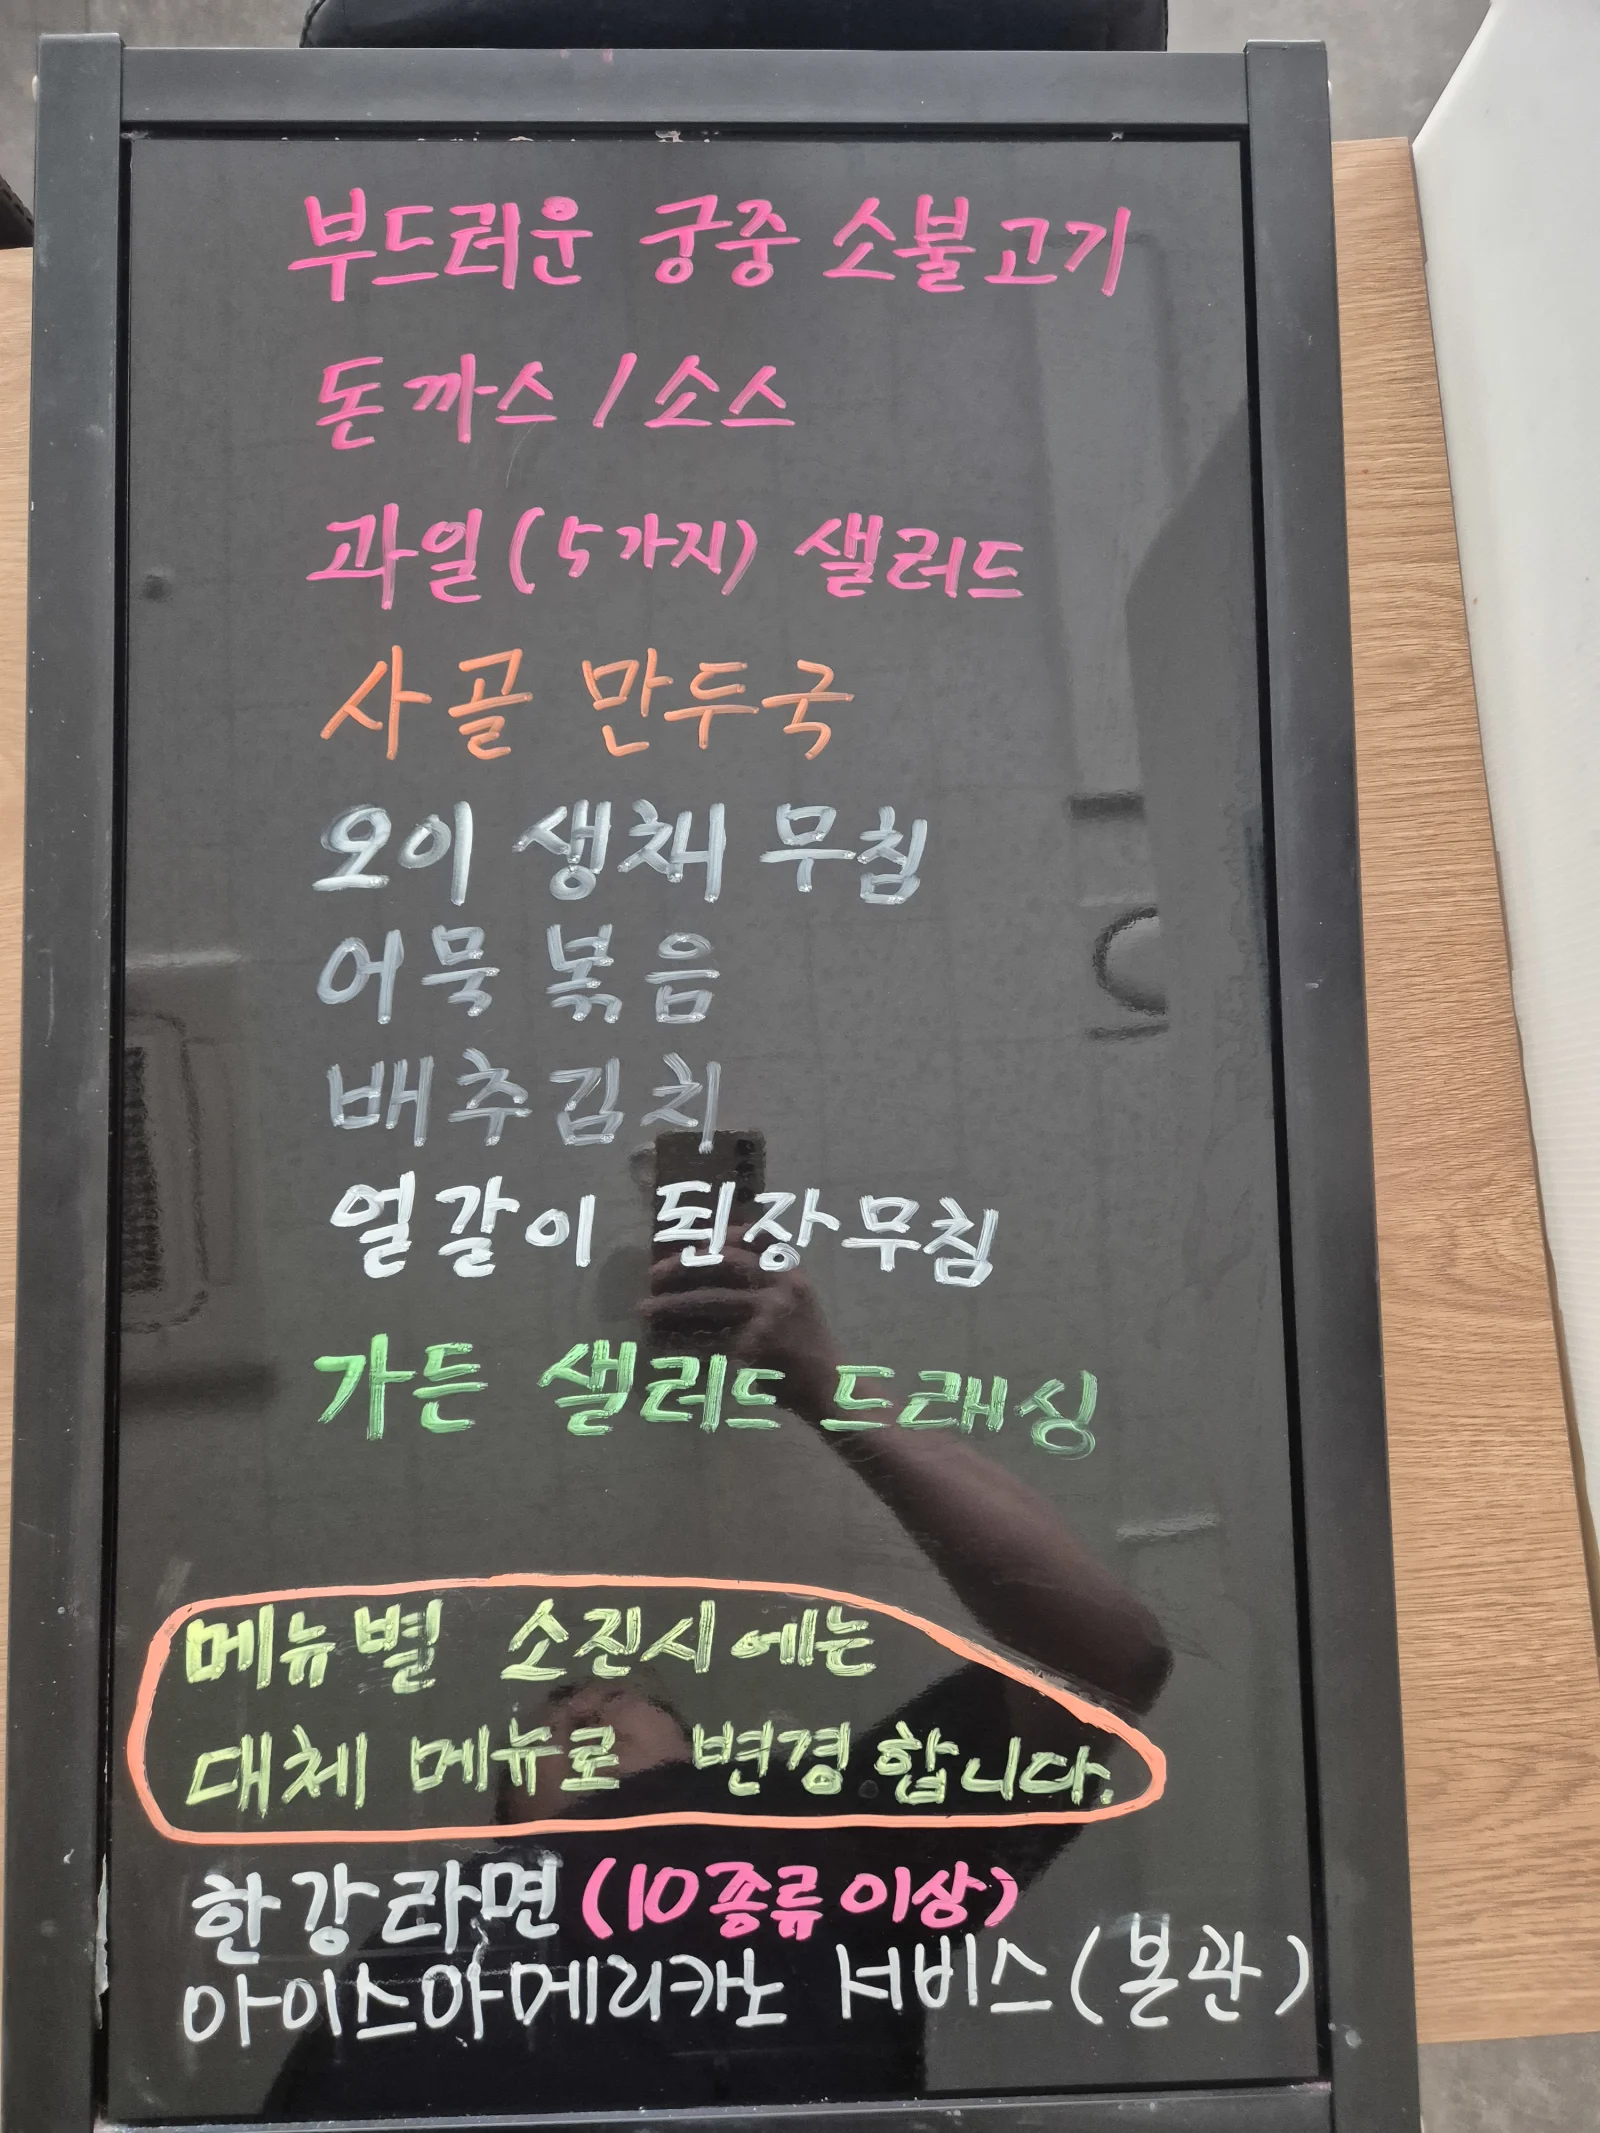 부드러운 궁중 소불고기
돈까스 / 소스
과일(5가지) 샐러드
사골 만두국
오이 생채 무침
어묵 볶음
배추김치
얼갈이 된장무침
가든 샐러드 드래싱
메뉴별 소진시에는
대체 메뉴로 변경합니다.
한강라면 (10종류이상)
아이스아메리카노 서비스(본관)